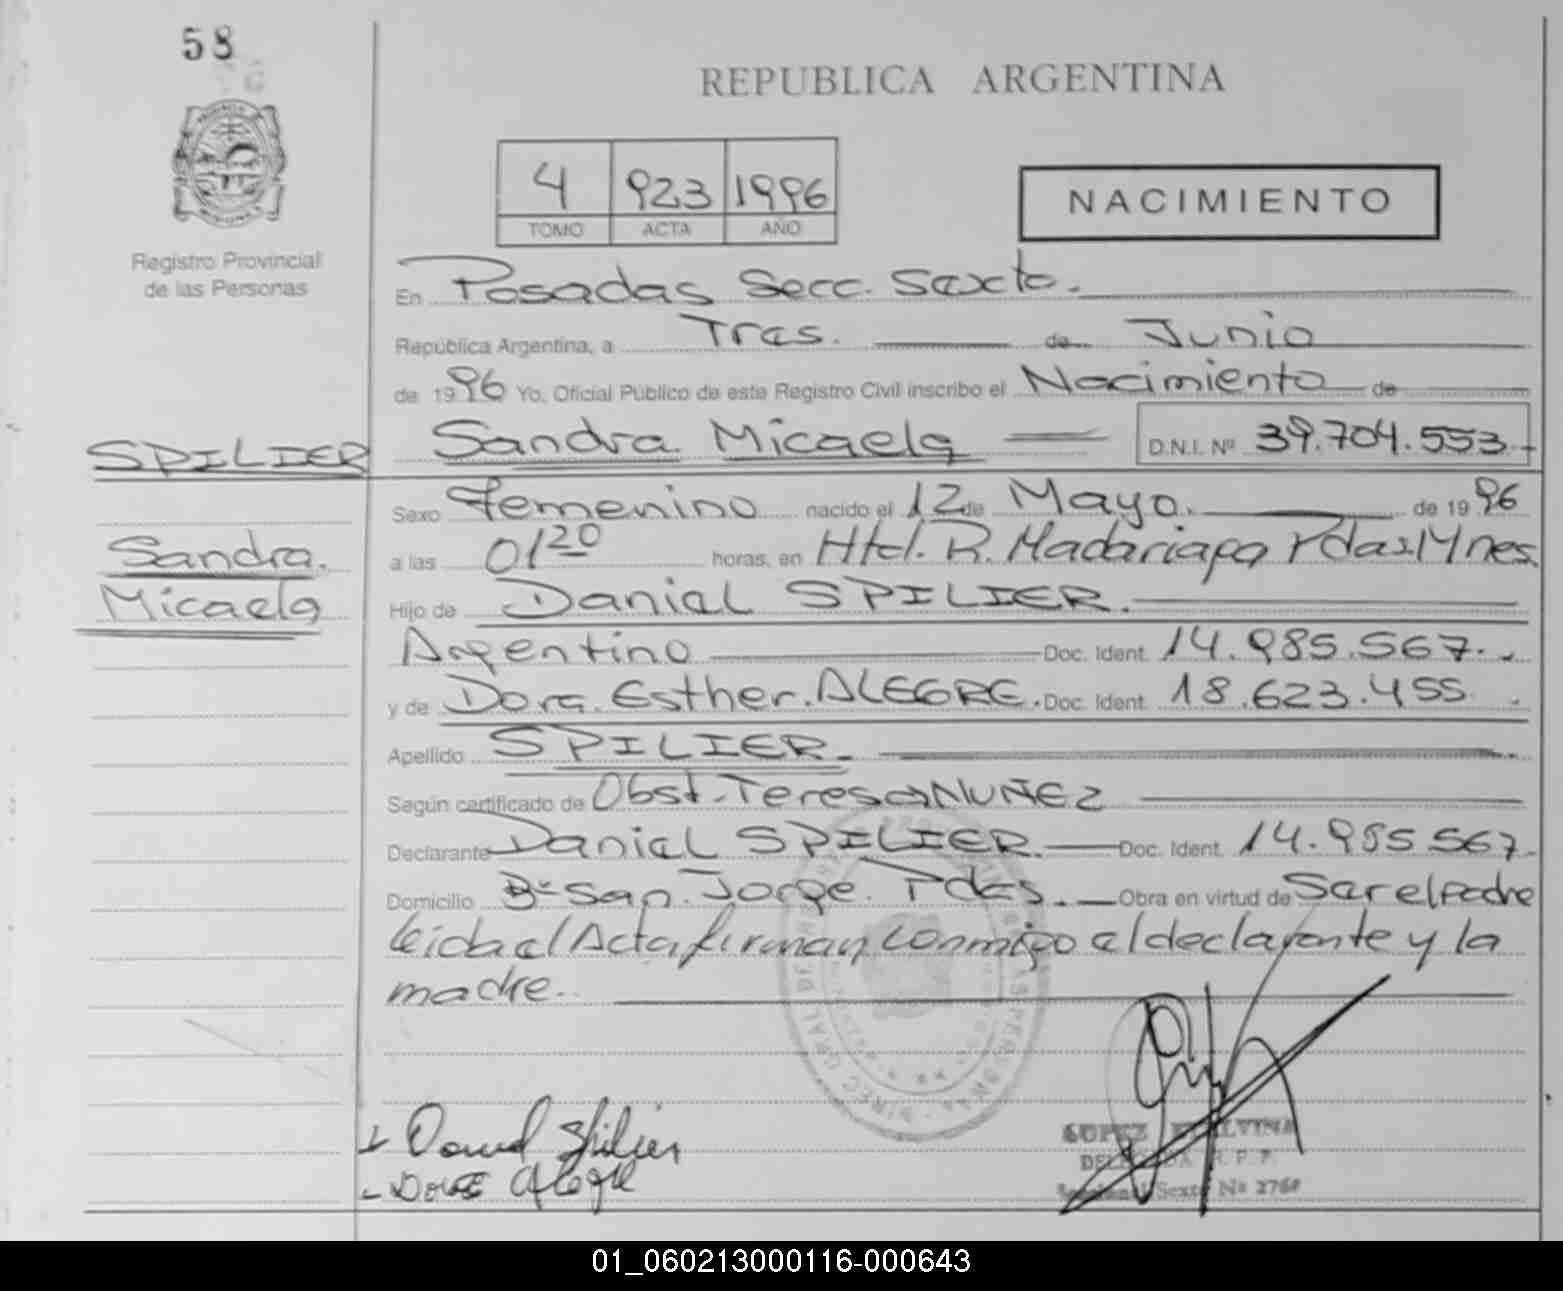 58
REPUBLICA ARGENTINA
4 923 1996
TOMO ACTA AÑO
NACIMIENTO
Registro Provincial
de las Personas
En Posadas Secc. Sexto.
República Argentina, a Tres. de Junio
de 1996 Yo, Oficial Público de este Registro Civil inscribo el Nacimiento de
SPILIER
Sandra Micaela D.N.I. Nº 39.704.553
Sexo Femenino nacido el 12 de Mayo. de 1996
Sandra.
Micaela
a las 01 20 horas, en Htal. R. Madariaga Pdas. Mnes.
Hijo de Daniel SPILIER.
Argentino Doc. Ident. 14.985.567.
y de Dora. Esther. ALEGRE. Doc. Ident. 18.623.455.
Apellido SPILIER.
Según certificado de Obst. Teresa NUÑEZ
Declarante Daniel SPILIER. Doc. Ident. 14.985.567.
Domicilio Bº San. Jorge. Pdas. Obra en virtud de Ser el padre
leida el Acta firman conmigo el declarante y la
madre.
Daniel Spilier
Dora Alegre
LOPEZ
R. P. P.
Seccional Sexta Nº 2760
01_060213000116-000643